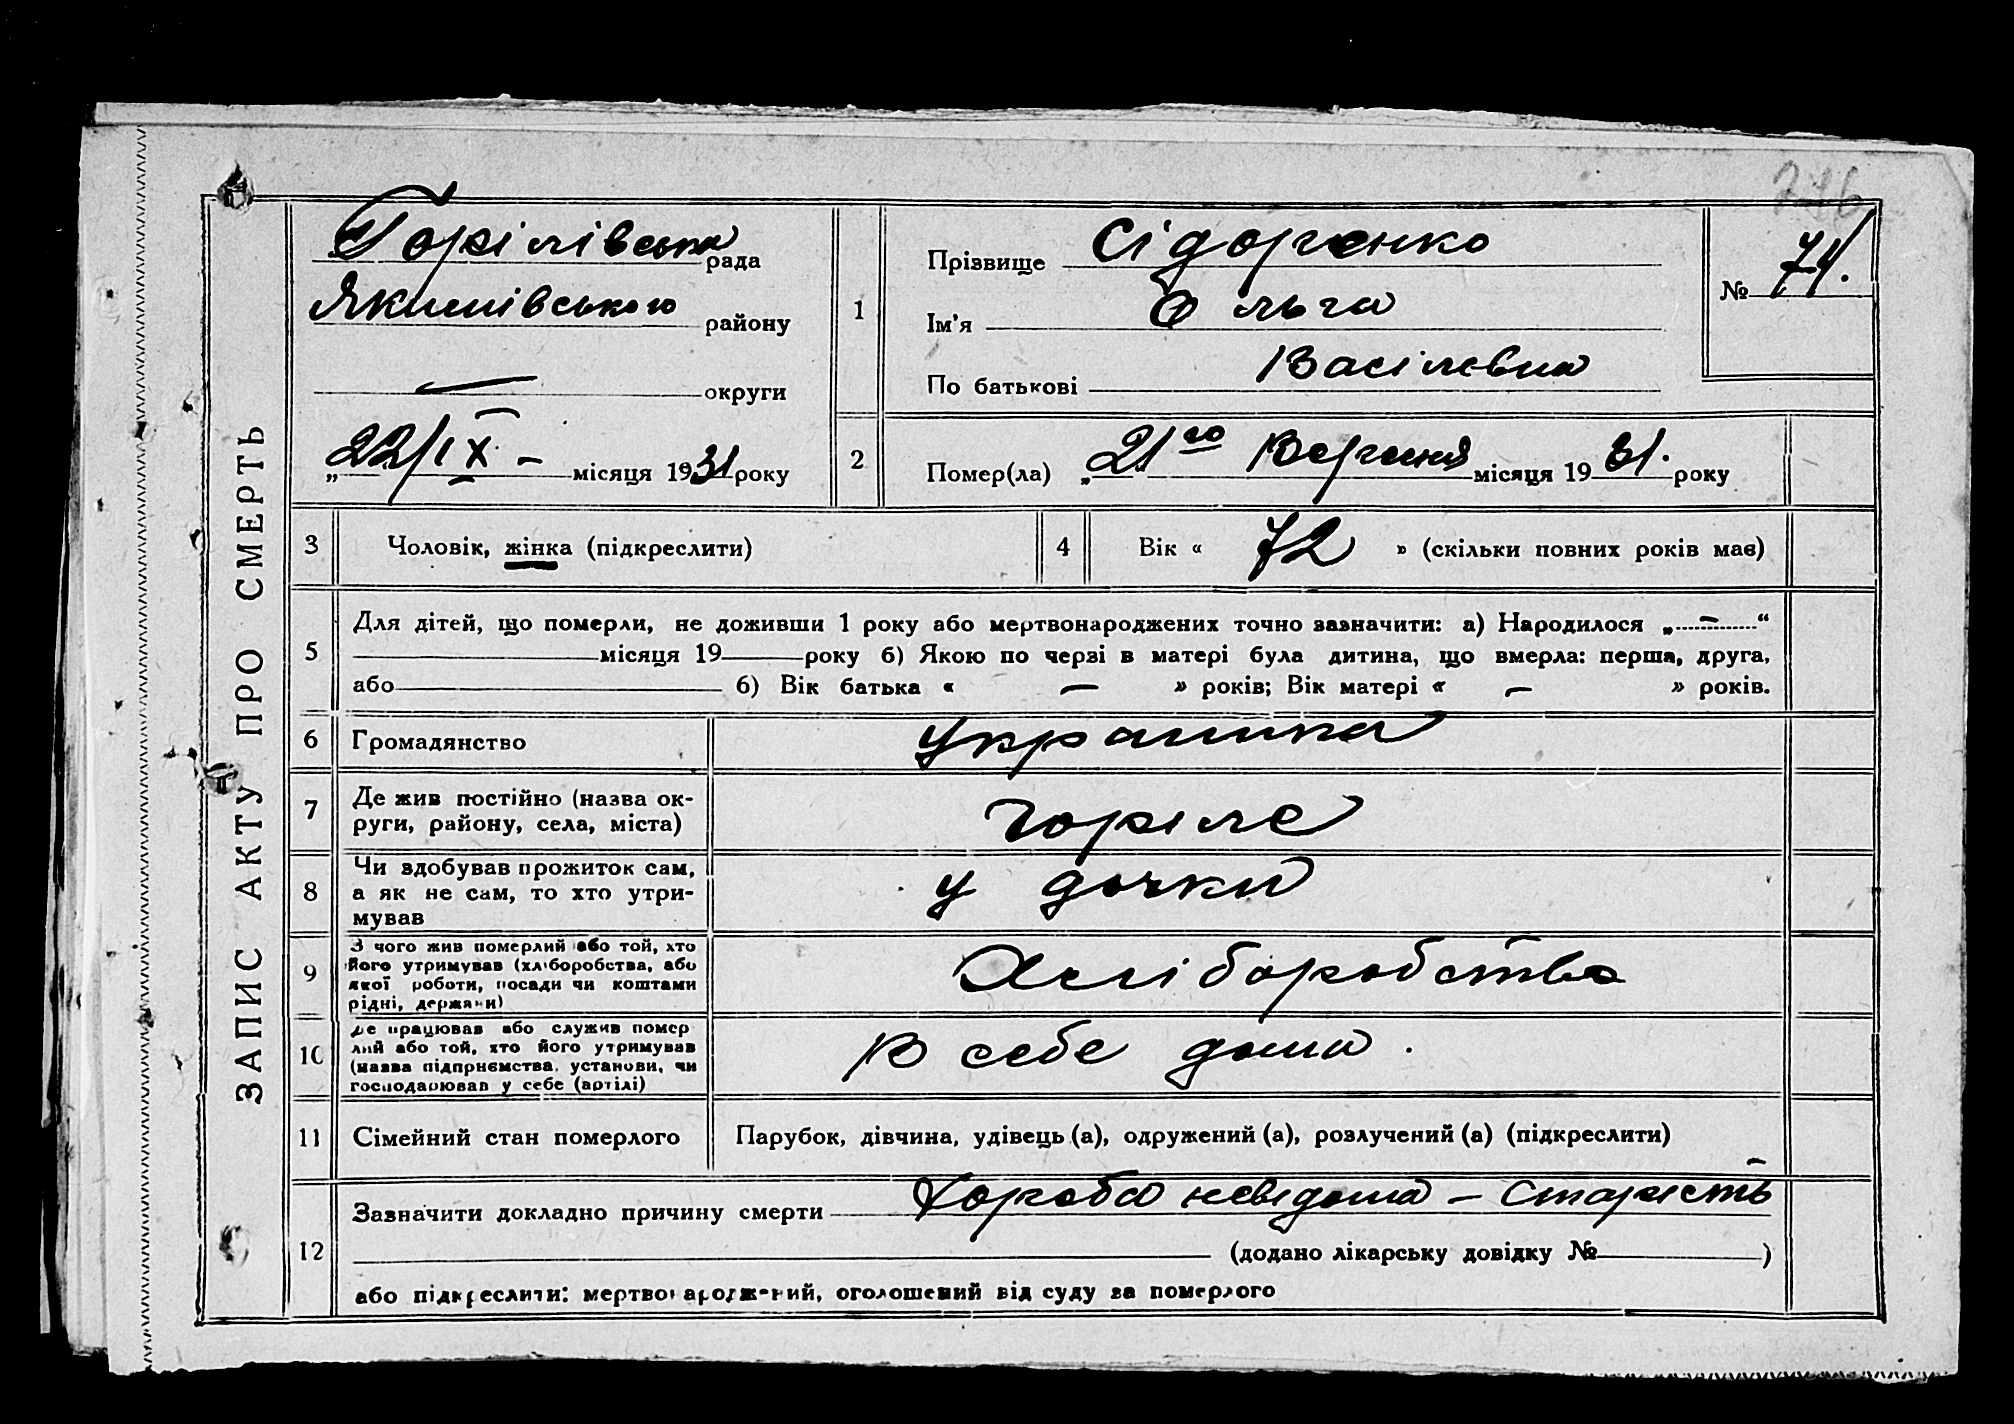 276
ЗАПИС АКТУ ПРО СМЕРТЬ
Горілівська рада
Якимівського району
— округи
„22/IX – місяця 1931 року
1
Прізвище Сідоренко
Ім'я Ольга
По батькові Васілевна
№ 74.
2
Помер(ла) „21го Вересня місяця 1931. року
3 Чоловік, жінка (підкреслити)
4 Вік « 72 » (скільки повних років має)
5
Для дітей, що померли, не доживши 1 року або мертвонароджених точно зазначити: а) Народилося „ — “
місяця 19 року б) Якою по черзі в матері була дитина, що вмерла: перша, друга,
або б) Вік батька « — » років; Вік матері « — » років.
6 Громадянство Українка
7 Де жив постійно (назва ок-
руги, району, села, міста)
Горіле
8 Чи здобував прожиток сам,
а як не сам, то хто утри-
мував
у дочки
9 З чого жив померлий або той, хто
його утримував (хліборобства, або
якої роботи, посади чи коштами
рідні, держави)
Хліборобства
10 Де працював або служив помер
лий або той, хто його утримував
(назва підприємства, установи, чи
господарював у себе (артілі)
В себе дома.
11 Сімейний стан померлого Парубок, дівчина, удівець (а), одружений (а), розлучений (а) (підкреслити)
12
Зазначити докладно причину смерти Хороба невідома – Старість
(додано лікарську довідку № )
або підкреслити: мертвонароджений, оголошений від суду за померлого